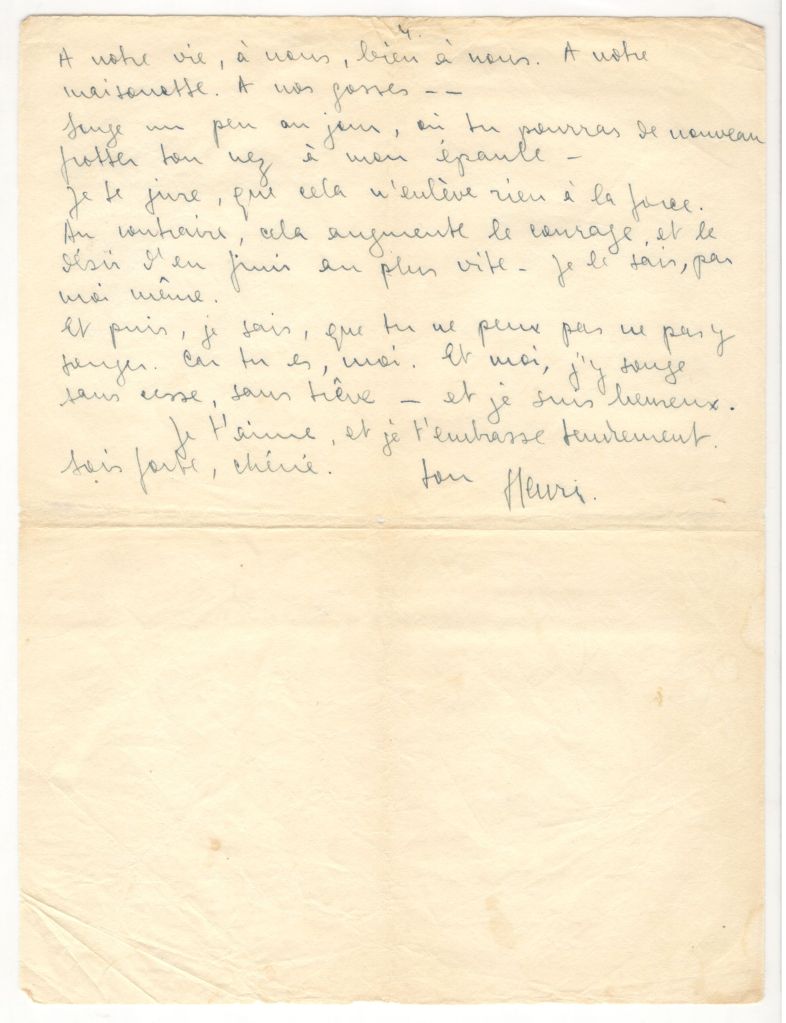 4.
A notre vie, à nous, bien à nous. A notre
maisonette. A nos gosses - -
Songe un peu au jour, où tu pourras de nouveau
frotter ton nez à mon épaule -
Je te jure, que cela n'enlève rien à la force.
Au contraire, cela augmente le courage, et le
désir d'en finir au plus vite - Je le sais, par
moi même.
Et puis, je sais, que tu ne peux pas ne pas y
songer. Car tu es, moi. Et moi, j'y songe
sans cesse, sans trêve - et je suis heureux.
Je t'aime, et je t'embrasse tendrement.
Sois forte, chérie. ton Henri.